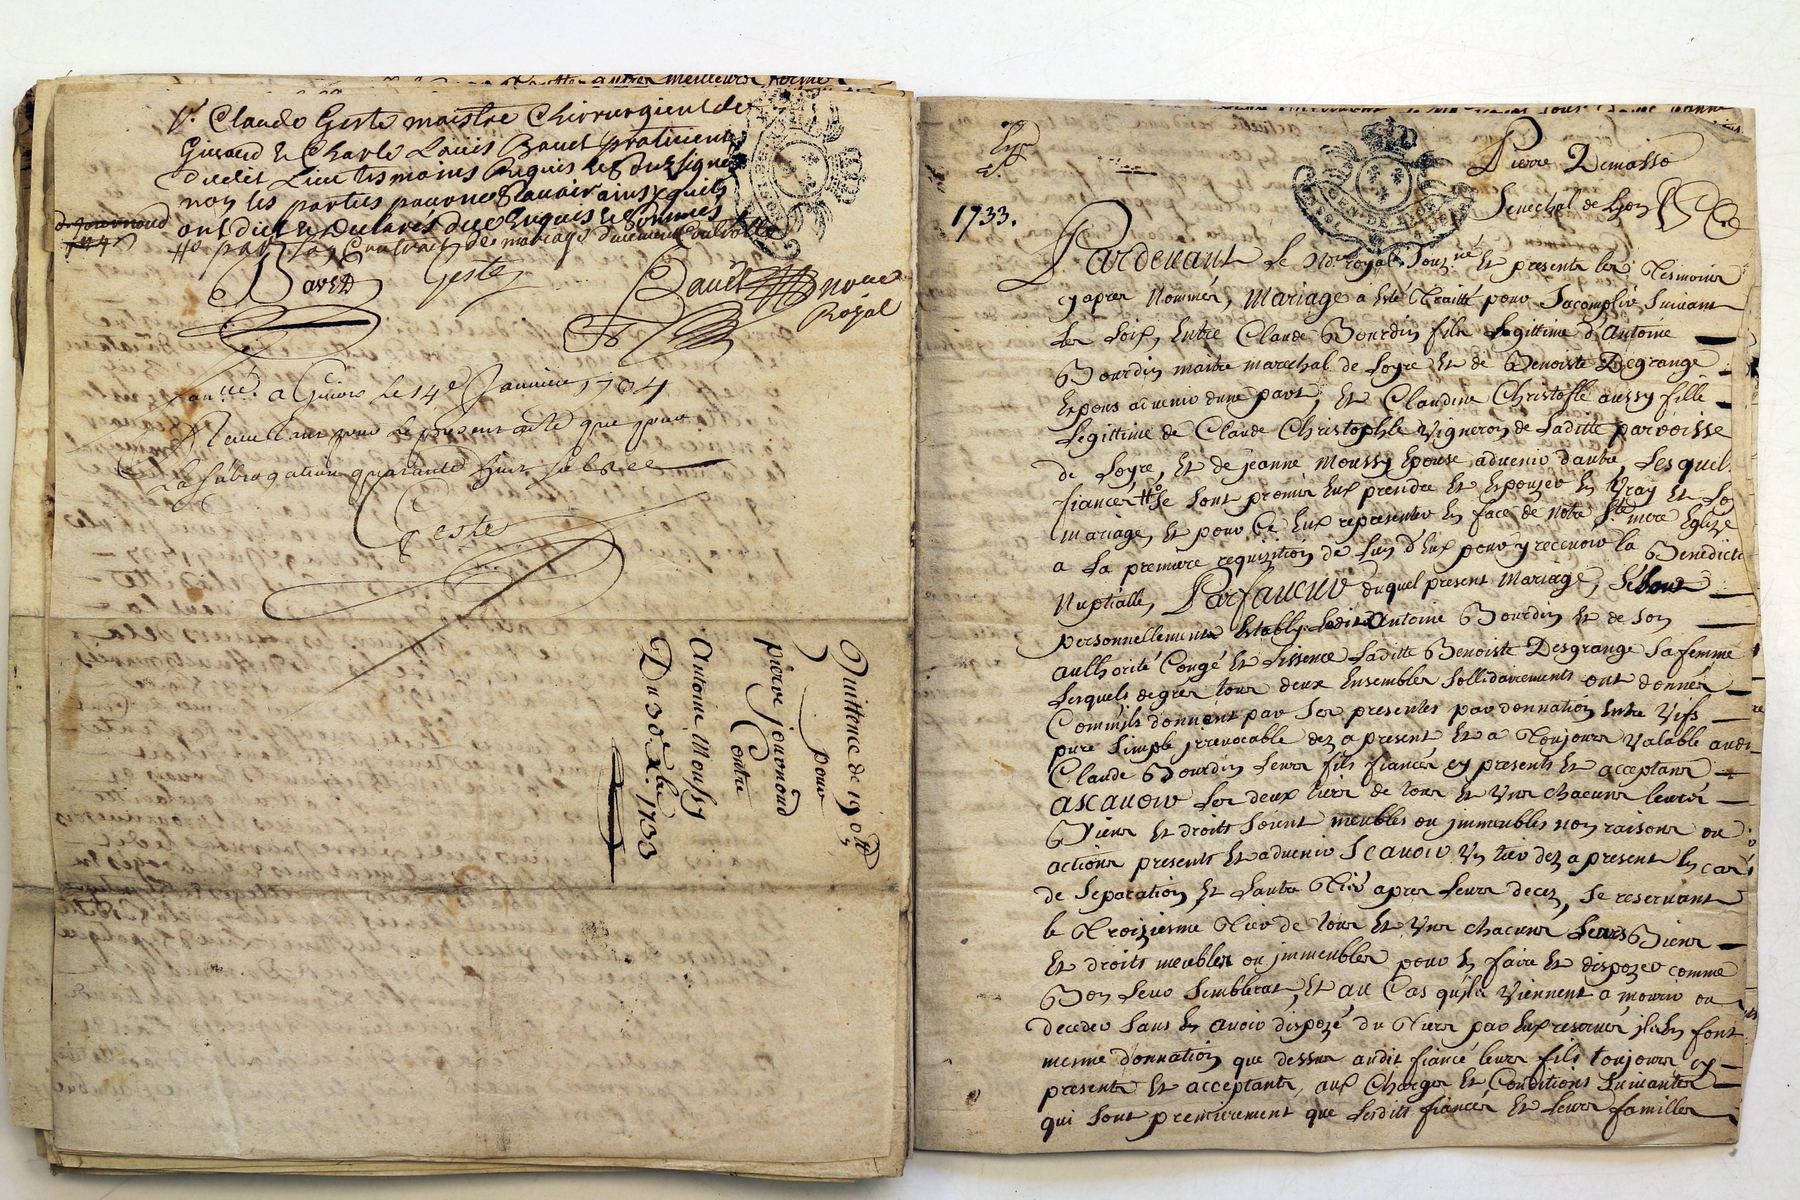 Sr Claude Geste maistre Chirurgient de
Givord & Charle Louis Bauet praticient
dudit Lieu tesmoins Requis & Soussignes
non les parties pour ne Scauoir ainsy quils
ont dict & Declarés de ce Enquis & Sommés
par Contract de mariage
Bavet Geste Bauet
Royal
a Givors Le 14e Janvier 1734
Receu pour Le present acte que pour
La subrogation quarante huit sols
Geste
Quittence de 190
pour
pierre jouvnoud
Contre
Antoine Moussy
Du 30 xbre 1733
Pierre Demasso
Senechal de Lyon
1733.
Pardeuant Le Nre royal Souzné Et presents les Tesmoins
cy apres Nommés, Mariage a Esté Traitté pour Sacomplir Suiuant
Les Loix, Entre Claude Bourdin fils Legittime d'Antoine
Bourdin maitre marechal de Loyre Et de Benoiste Degrange
Espous aduenir dune part, Et Claudine Christofle aussy fille
Legittime de Claude Christophle Vigneron de Laditte parroisse
de Loyre, Et de jeanne Moussy Epouse aduenir dautre, Lesquels
fiancés Se Sont promis Eux prendre Et Espouzer En Vray Et Loy
mariage, Et pour Ce Eux representer En face de Notre Ste mere Eglize
a La premiere requizition de Lun d'Eux pour y receuoir la Benedicti
Nuptialle, Parfaueur duquel present Mariage, Se Sont
personnellement Establys Ledit Antoine Bourdin Et de Son
authorité Congé Et Lissence Laditte Benoiste Desgrange Sa femme
Lesquels degrés tous deux Ensembles Sollidairements ont donnés
Comm'ils donnent par Ses presentes par donnation Entre Vifs
pure Simple jrreuocable dez a present Et a Toujours Valable audit
Claude Bourdin Leurs fils fiancés cy presents Et acceptans
ascauoir Les deux tiers de tous Et Vns chacuns leurs
Biens Et droits Soient meubles ou jmmeubles noms raisons ou
actions presents Et aduenir Scauoir Vn tier dez a present En cas
de Separation, Et Lautre Tier apres Leurs decez, Se reseruant
le Troiziesme Tier de tous Et Vns chacuns Leurs Biens
Et droits meubles ou jmmeubles pour En faire Et dispozer comme
Bon Leur Semblerat, Et au Cas qu'ils Viennent a mourir ou
deceder Sans En auoir dispozé du Tiers par Eux reserués, ils En font
mesme donnation que dessus audit fiancé leurs fils toujours cy
presents Et acceptants, aux Charges Et Conditions Suiuantes
qui Sont premierement que Lesdits fiancés Et Leurs familles